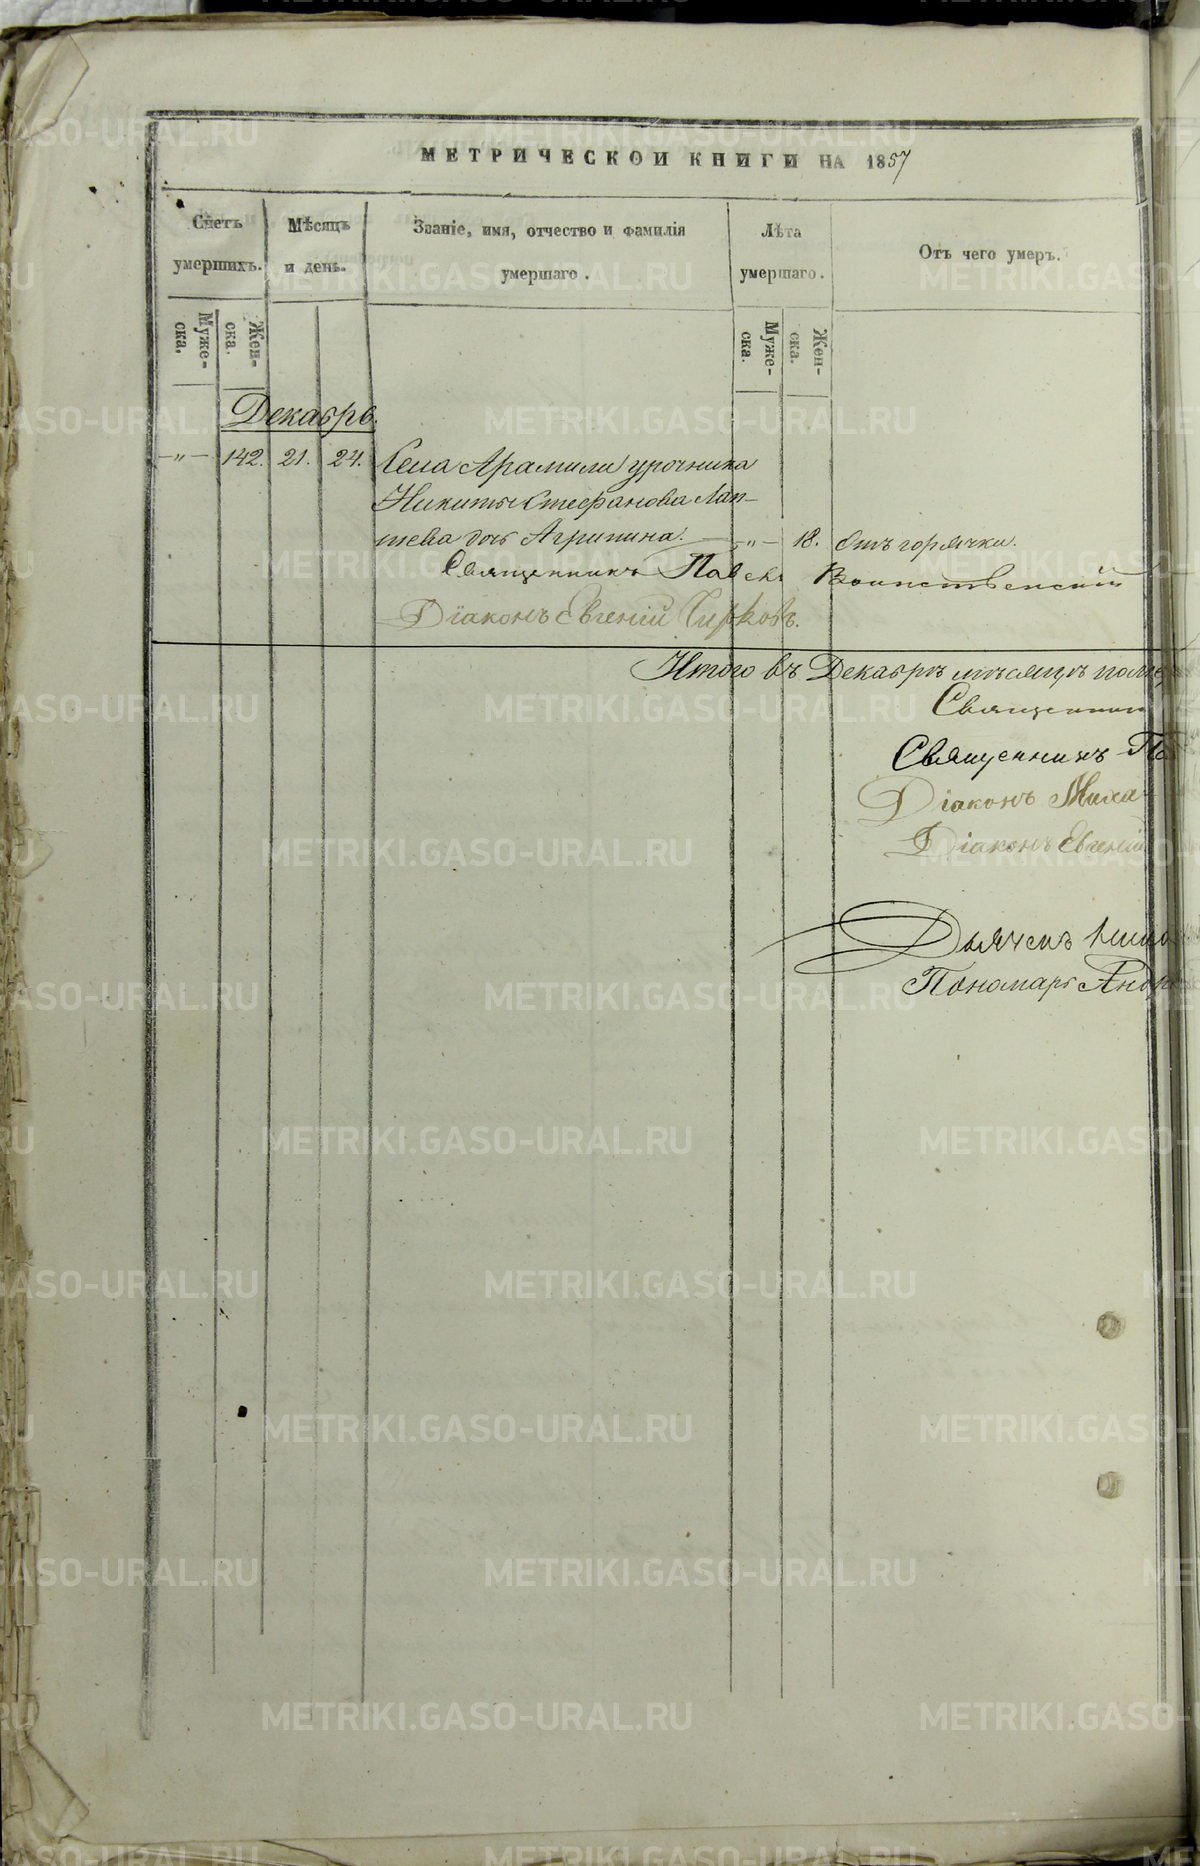 МЕТРИЧЕСКОЙ КНИГИ НА 1857
Счетъ умершихъ.
Мѣсяцъ и день.
Званіе, имя, отчество и фамилія умершаго.
Лѣта умершаго.
Отъ чего умеръ.
Муже-ска.
Жен-ска.
Муже-ска.
Жен-ска.
Декабрь.
-"- 142. 21. 24. Села Арамили урочника
Никиты Стефанова Лап-
тева дочь Агрипина. -"- 18. Отъ горячки.
Священникъ Павелъ Воинственскій
Діаконъ Евгеній Чирковъ.
Итого въ Декабрѣ мѣсяцѣ
Священник
Священникъ Па
Діаконъ Миха
Діаконъ Евгеній
Дьячекъ
Пономарь Андр
METRIKI.GASO-URAL.RU